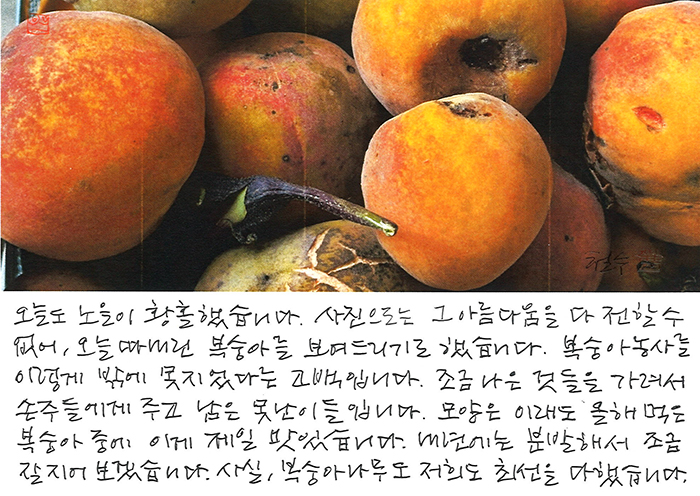 철수
오늘도 노을이 황홀했습니다. 사진으로는 그 아름다움을 다 전할 수
없어, 오늘 따내린 복숭아를 보여드리기로 했습니다. 복숭아농사를
이렇게 밖에 못지었다는 고백입니다. 조금 나은 것들을 가려서
손주들에게 주고 남은 못난이들입니다. 모양은 이래도 올해 먹은
복숭아 중에 이게 제일 맛있었습니다. 내년에는 분발해서 조금
잘지어 보겠습니다. 사실, 복숭아나무도 저희도 최선을 다했습니다.